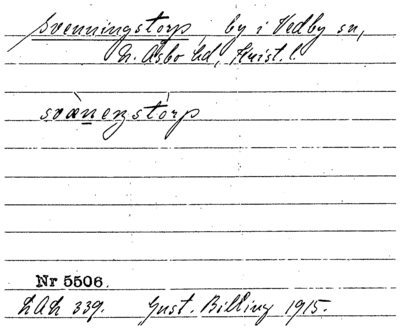 Svenningstorp, by i Vedby sn,
N. Åsbo hd, Krist. l.
svæ̀nenstórp
Nr 5506.
LAL 339. Gust. Billing 1915.